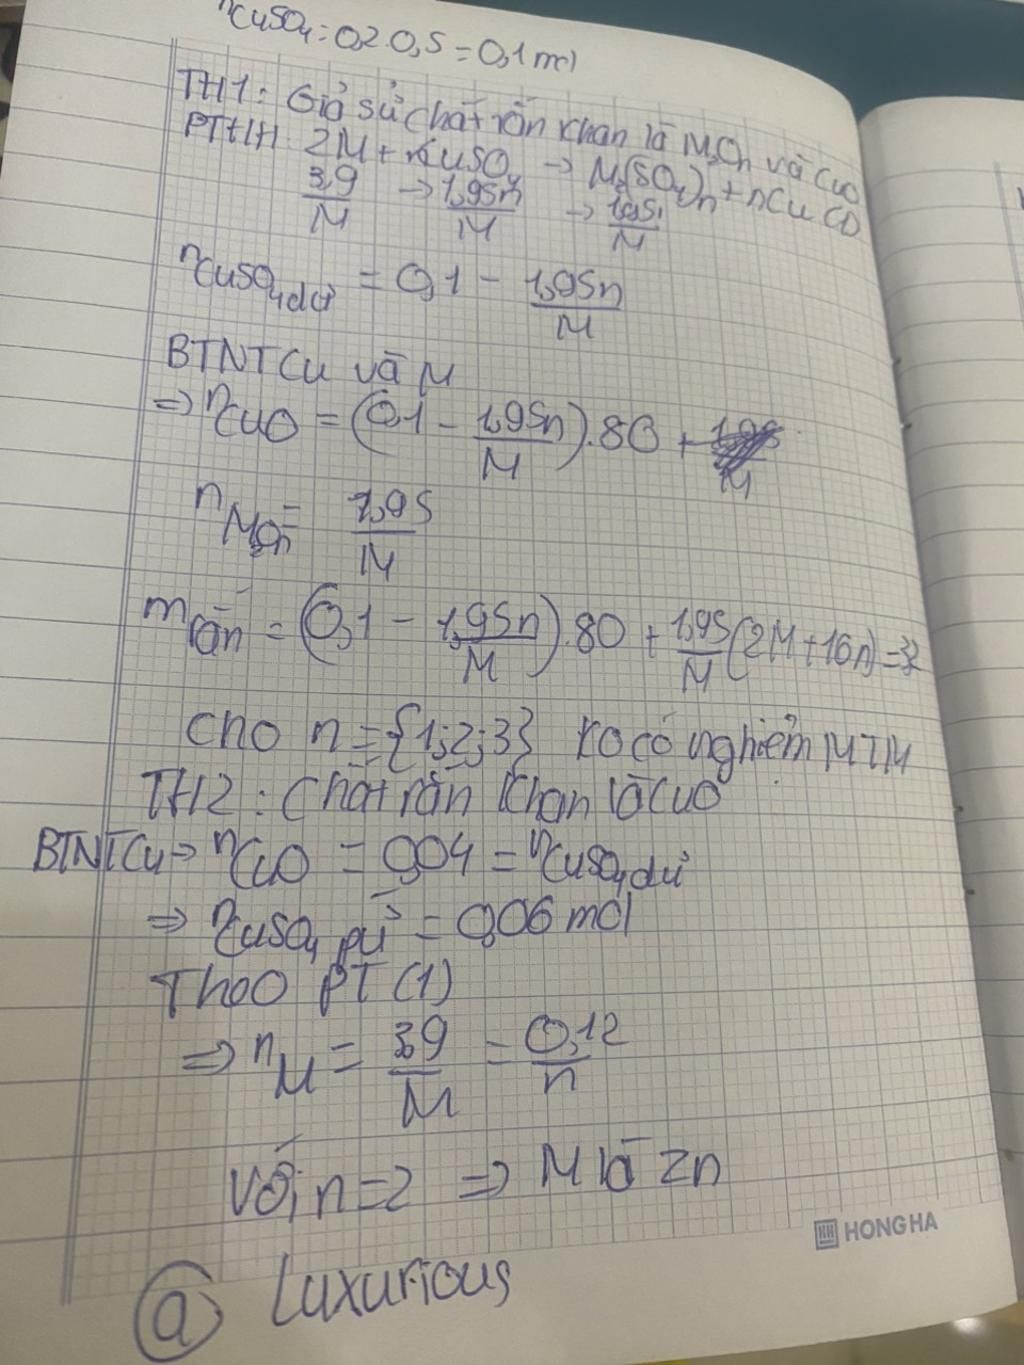 nCuSO₄ = 0,2.0,5 = 0,1 mol
TH1: Giả sử chất rắn khan là M₂On và CuO
PTHH: 2M + nCuSO₄ → M₂(SO₄)n + nCu (1)
3,9/M → 1,95n/M → 1,95/M
nCuSO₄ dư = 0,1 - 1,95n/M
BTNT Cu và M
⇒ nCuO = (0,1 - 1,95n/M).80 +
nM₂On = 1,95/M
m rắn = (0,1 - 1,95n/M).80 + 1,95/M (2M + 16n) = 3,2
cho n = {1;2;3} ko có nghiệm MTM
TH2: Chất rắn khan là CuO
BTNT Cu → nCuO = 0,04 = nCuSO₄ dư
⇒ nCuSO₄ pứ = 0,06 mol
Theo PT (1)
⇒ nM = 3,9/M = 0,12/n
Với n = 2 ⇒ M là Zn
HH HONG HA
@ Luxurious